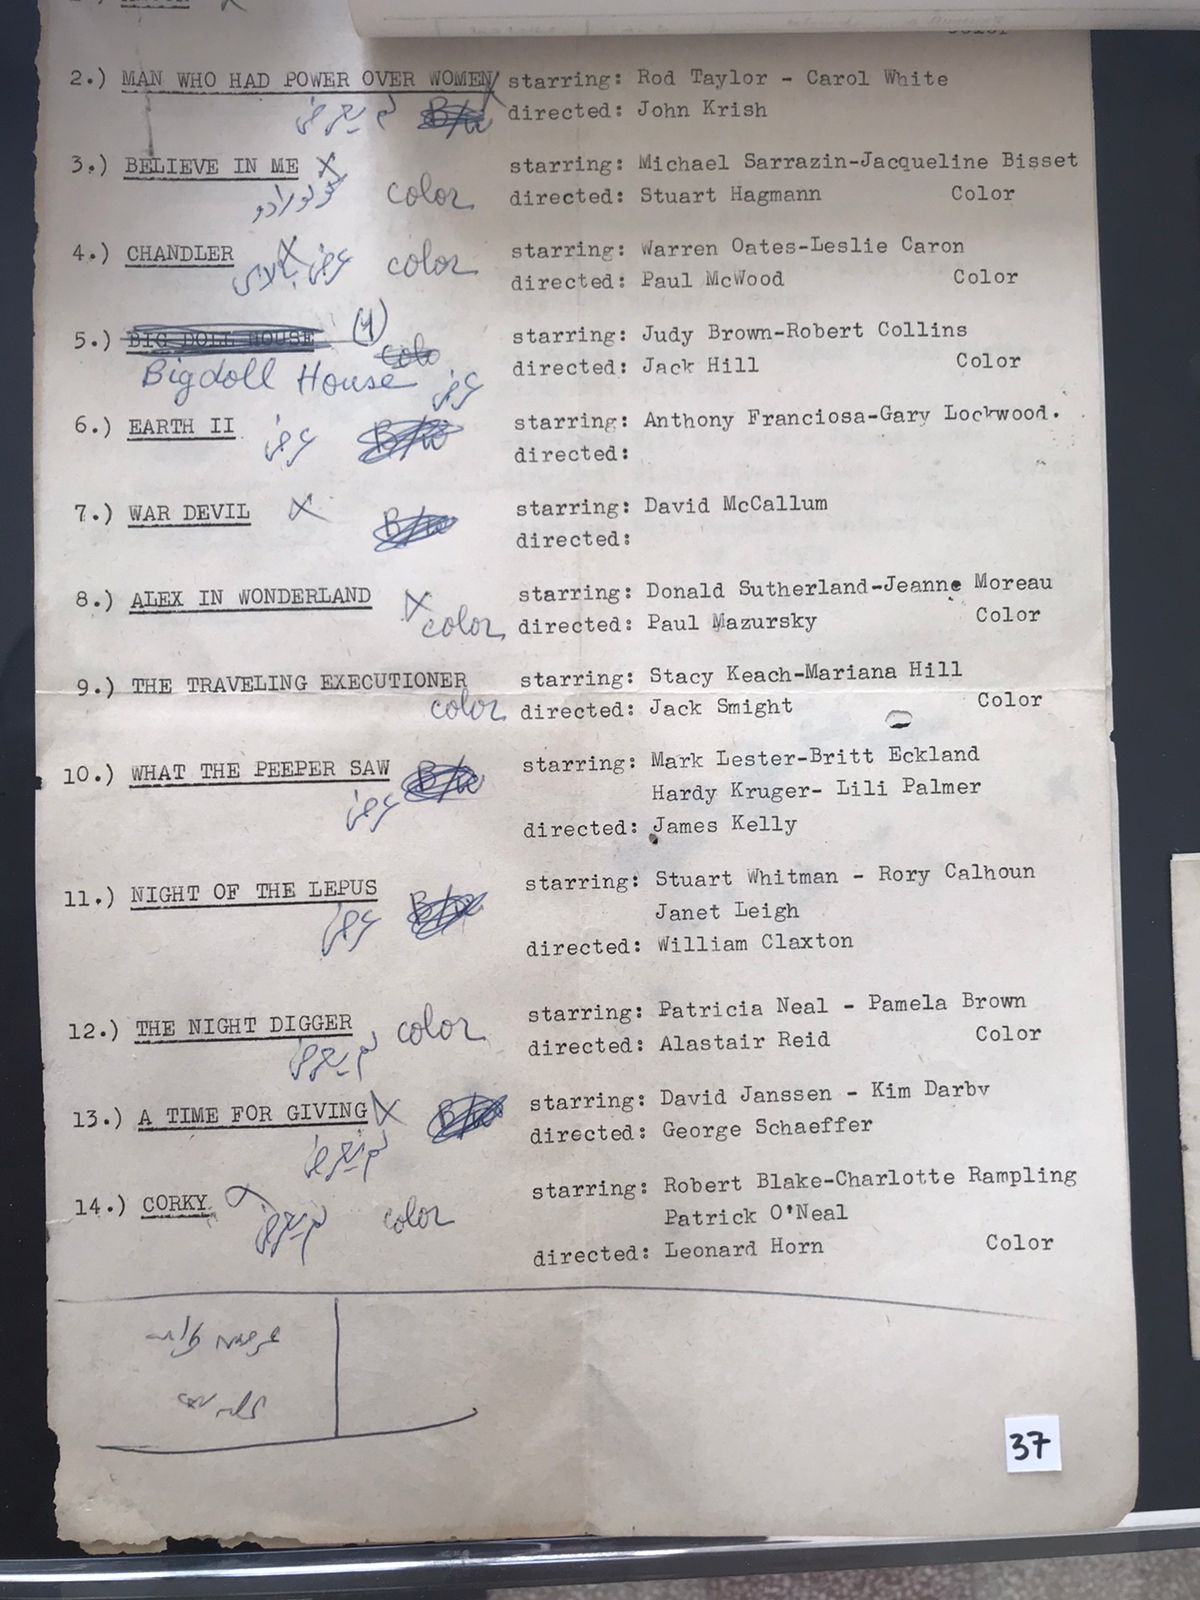 Color
2.) MAN WHO HAD POWER OVER WOMEN starring: Rod Taylor - Carol White
لم يعرض B/W directed: John Krish
3.) BELIEVE IN ME starring: Michael Sarrazin-Jacqueline Bisset
color directed: Stuart Hagmann Color
4.) CHANDLER starring: Warren Oates-Leslie Caron
عرض color directed: Paul McWood Color
5.) BIG DOLL HOUSE starring: Judy Brown-Robert Collins
Bigdoll House عرض directed: Jack Hill Color
6.) EARTH II عرض B/W starring: Anthony Franciosa-Gary Lockwood.
directed:
7.) WAR DEVIL B/W starring: David McCallum
directed:
8.) ALEX IN WONDERLAND starring: Donald Sutherland-Jeanne Moreau
color directed: Paul Mazursky Color
9.) THE TRAVELING EXECUTIONER starring: Stacy Keach-Mariana Hill
color directed: Jack Smight Color
10.) WHAT THE PEEPER SAW B/W starring: Mark Lester-Britt Eckland
عرض Hardy Kruger- Lili Palmer
directed: James Kelly
11.) NIGHT OF THE LEPUS B/W starring: Stuart Whitman - Rory Calhoun
عرض Janet Leigh
directed: William Claxton
12.) THE NIGHT DIGGER color starring: Patricia Neal - Pamela Brown
لم يعرض directed: Alastair Reid Color
13.) A TIME FOR GIVING B/W starring: David Janssen - Kim Darby
لم يعرض directed: George Schaeffer
14.) CORKY color starring: Robert Blake-Charlotte Rampling
لم يعرض Patrick O'Neal
directed: Leonard Horn Color
37